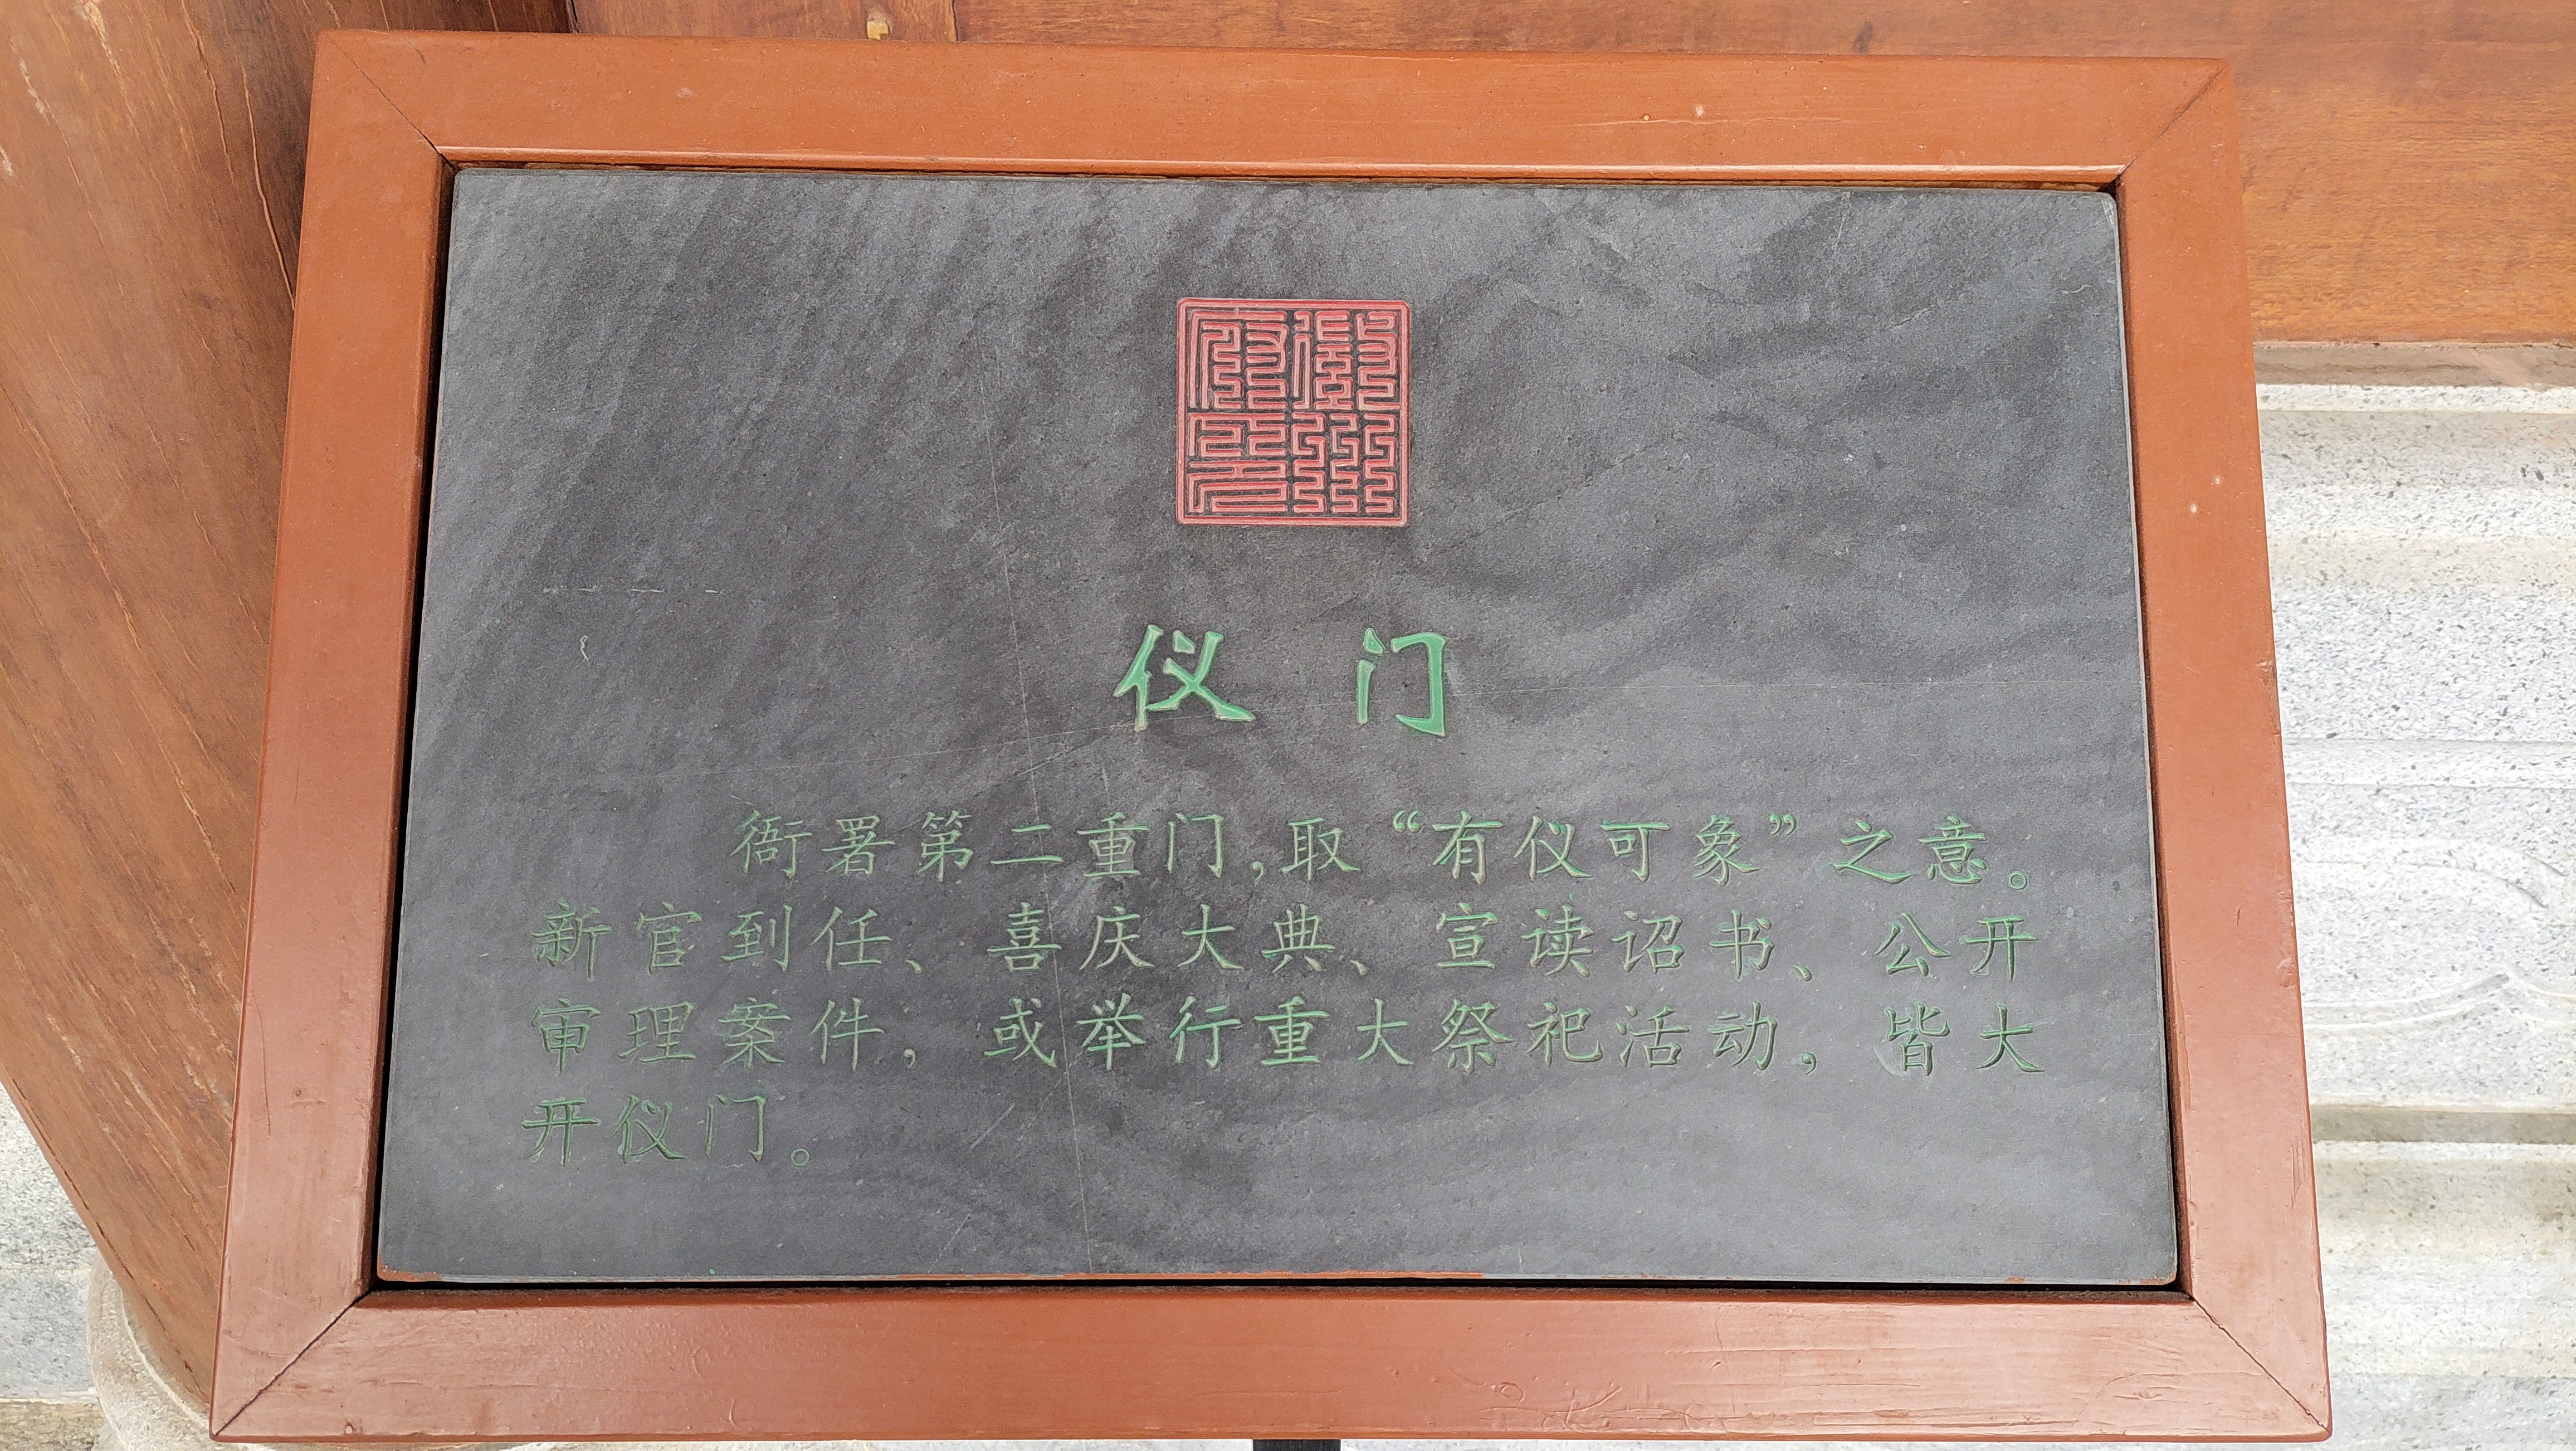 仪门
衙署第二重门,取“有仪可象”之意。
新官到任、喜庆大典、宣读诏书、公开
审理案件,或举行重大祭祀活动,皆大
开仪门。